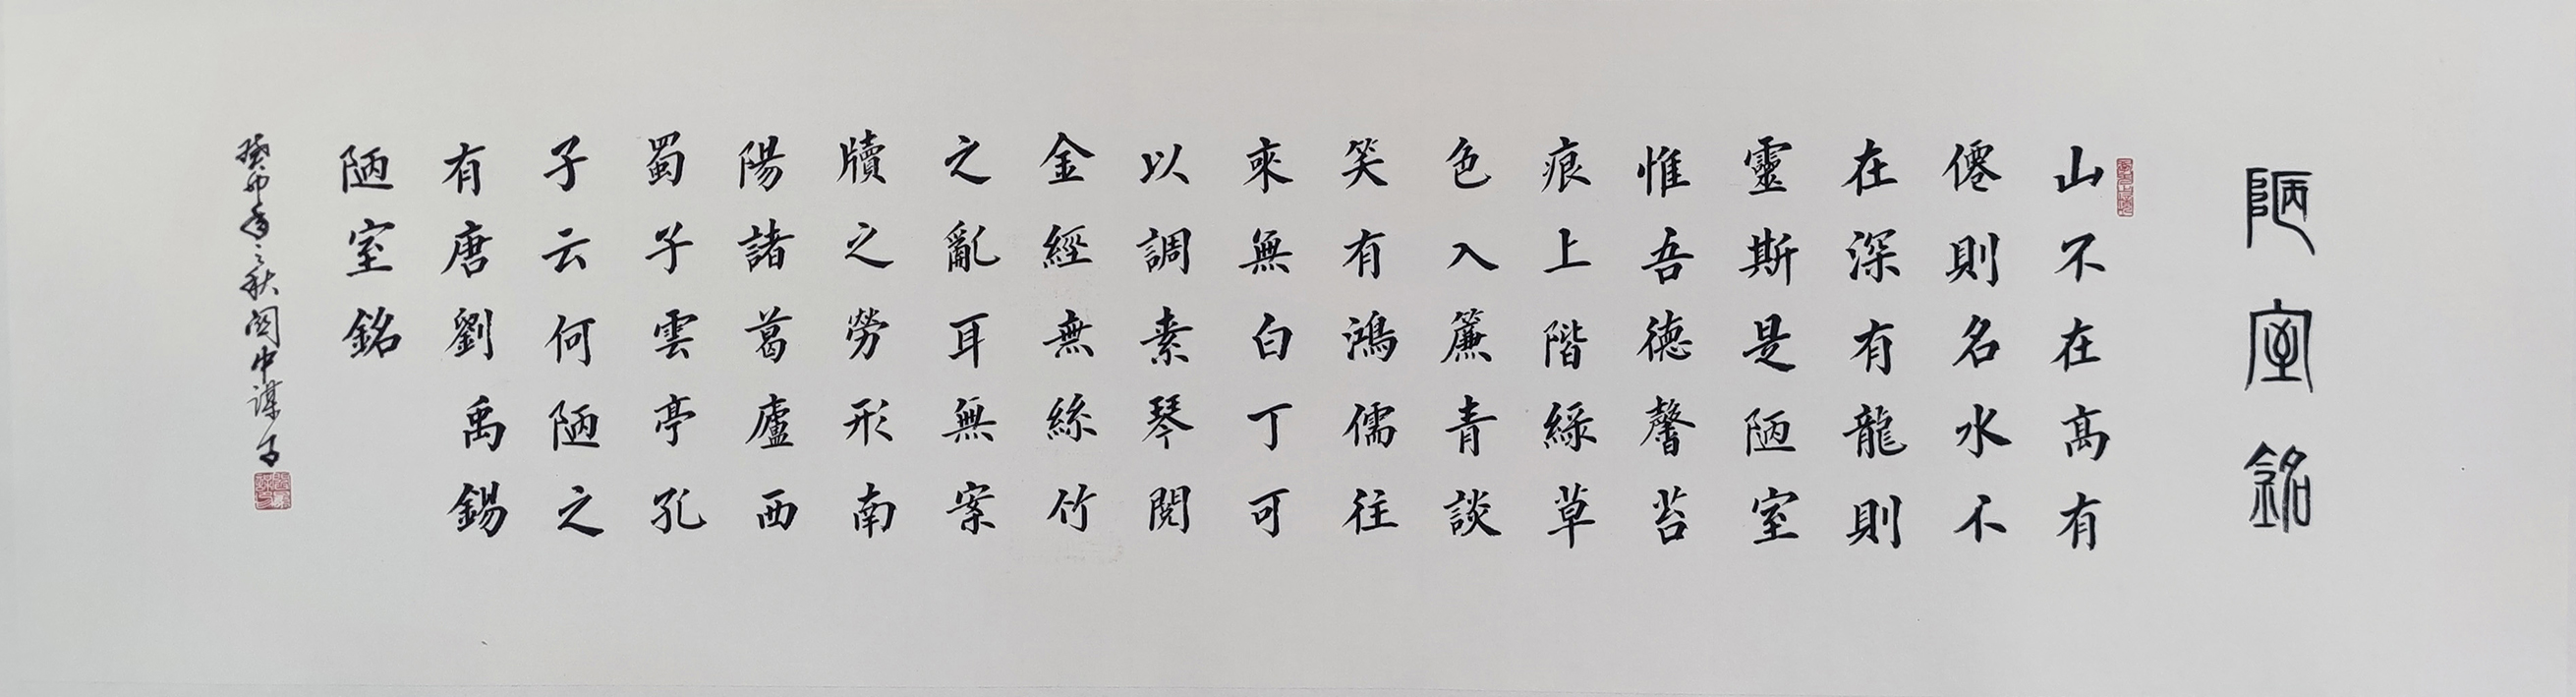 陋室銘
山不在高有
僊則名水不
在深有龍則
靈斯是陋室
惟吾德馨苔
痕上階綠草
色入簾青談
笑有鴻儒往
來無白丁可
以調素琴閱
金經無絲竹
之亂耳無案
牘之勞形南
陽諸葛廬西
蜀子雲亭孔
子云何陋之
有唐劉禹錫
陋室銘
癸卯年之秋閔中謀書